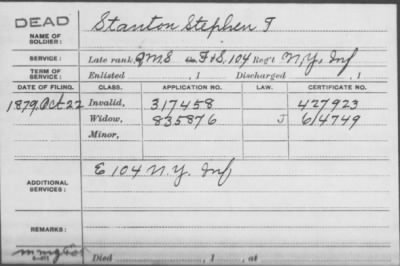 DEAD
NAME OF SOLDIER: Stanton Stephen T
SERVICE: Late rank Q M S Co. F+S, 104 Reg't N.Y. Inf
TERM OF SERVICE: Enlisted , 1 Discharged , 1
DATE OF FILING. CLASS. APPLICATION NO. LAW. CERTIFICATE NO.
1879, Oct 22 Invalid, 317458 427923
Widow, 835876 J 614749
Minor,
E 104 N.Y. Inf
ADDITIONAL SERVICES:
REMARKS:
Died , 1 , at